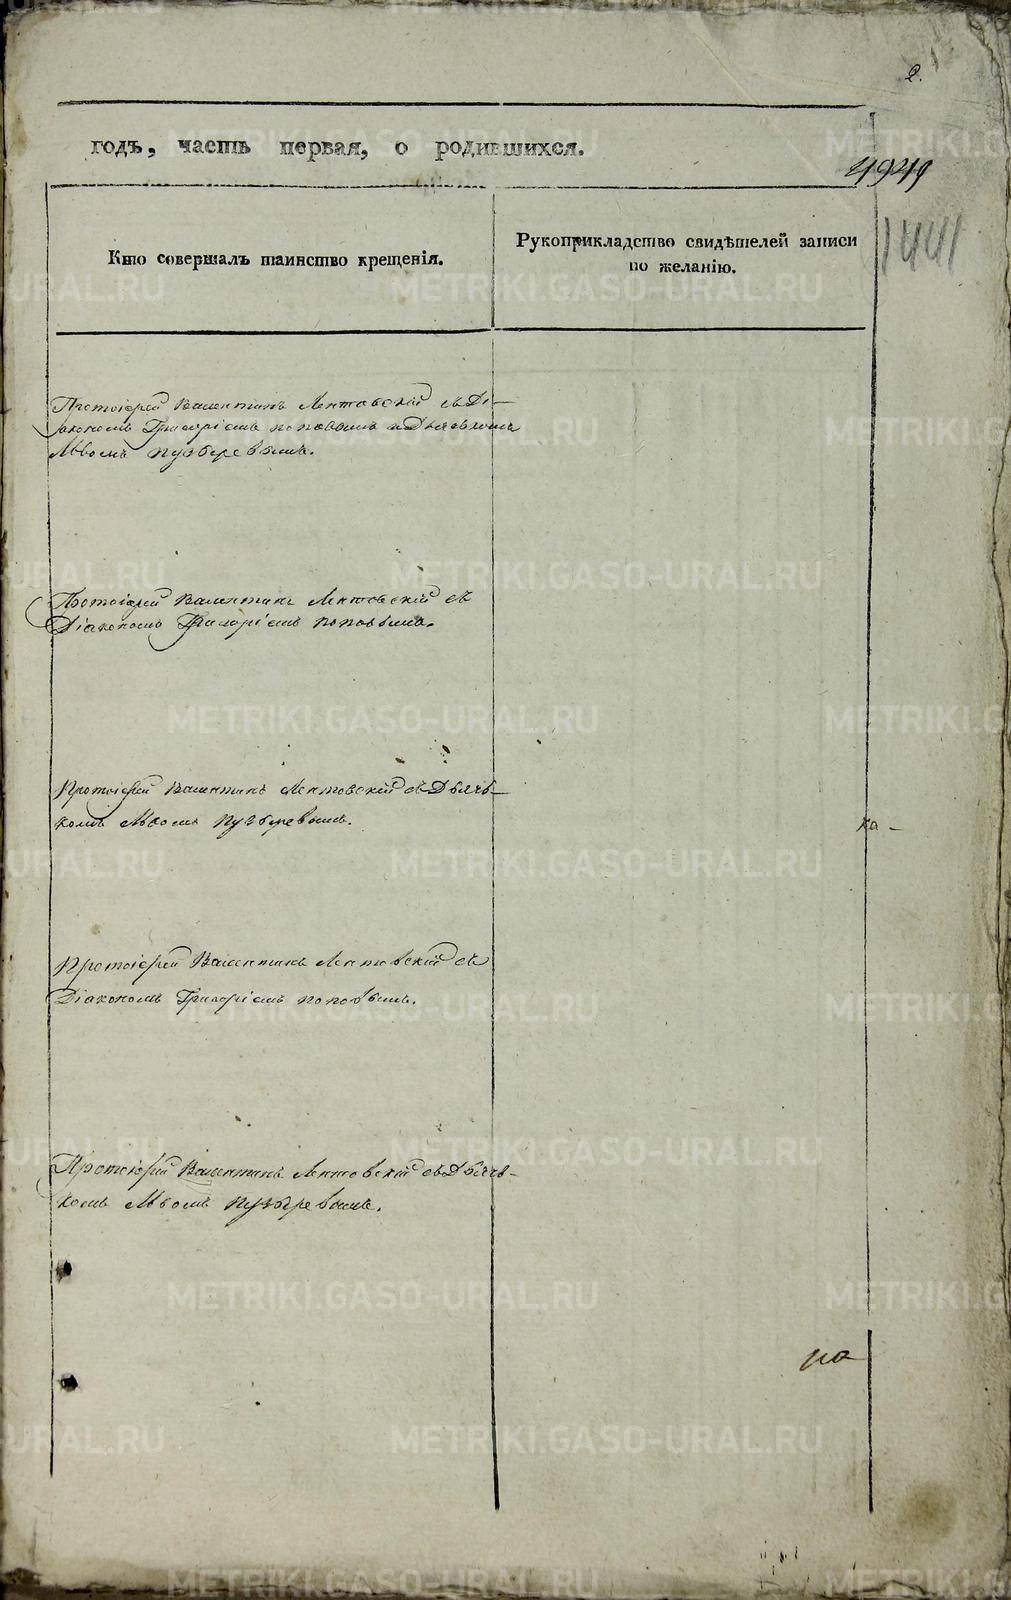 2.
годъ, часть первая, о родившихся.
1441
Кто совершалъ таинство крещенія.
Рукоприкладство свидѣтелей записи
по желанію.
Протоіерей Валентинъ Лентовскій съ Ді-
акономъ Григоріемъ Поповымъ и Дьячкомъ
Львомъ Пузыревымъ.
Протоіерей Валентинъ Лентовскій съ
Діакономъ Григоріемъ Поповымъ.
Протоіерей Валентинъ Лентовскій съ Дьяч-
комъ Львомъ Пузыревымъ.
Протоіерей Валентинъ Лентовскій съ
Діакономъ Григоріемъ Поповымъ.
Протоіерей Валентинъ Лентовскій съ Дьяч-
комъ Львомъ Пузыревымъ.
METRIKI.GASO-URAL.RU